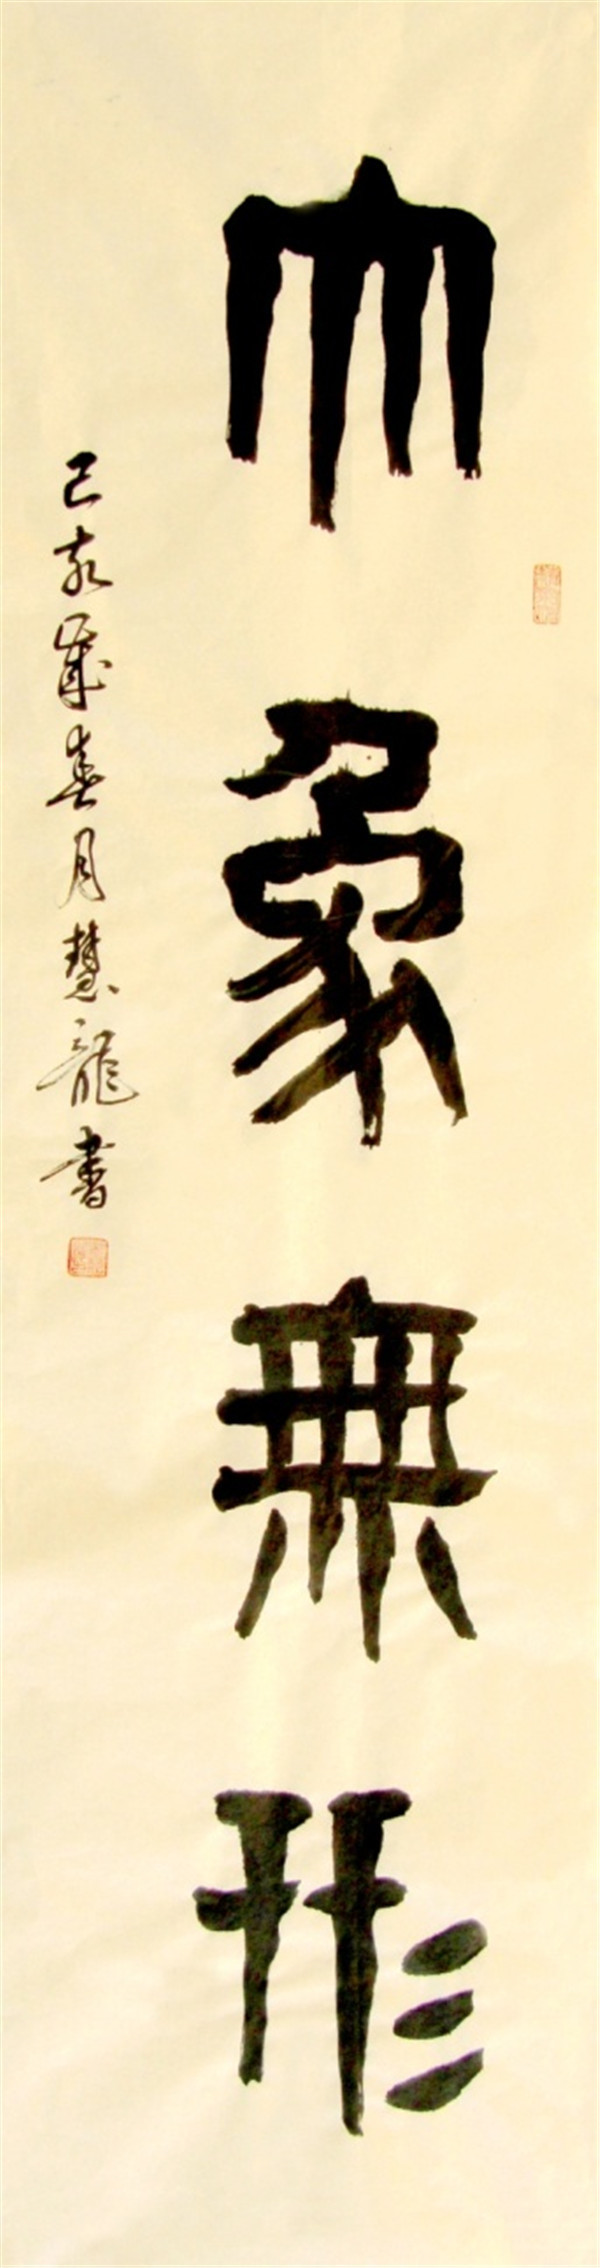 大象無形
己亥歲春月慧龍書